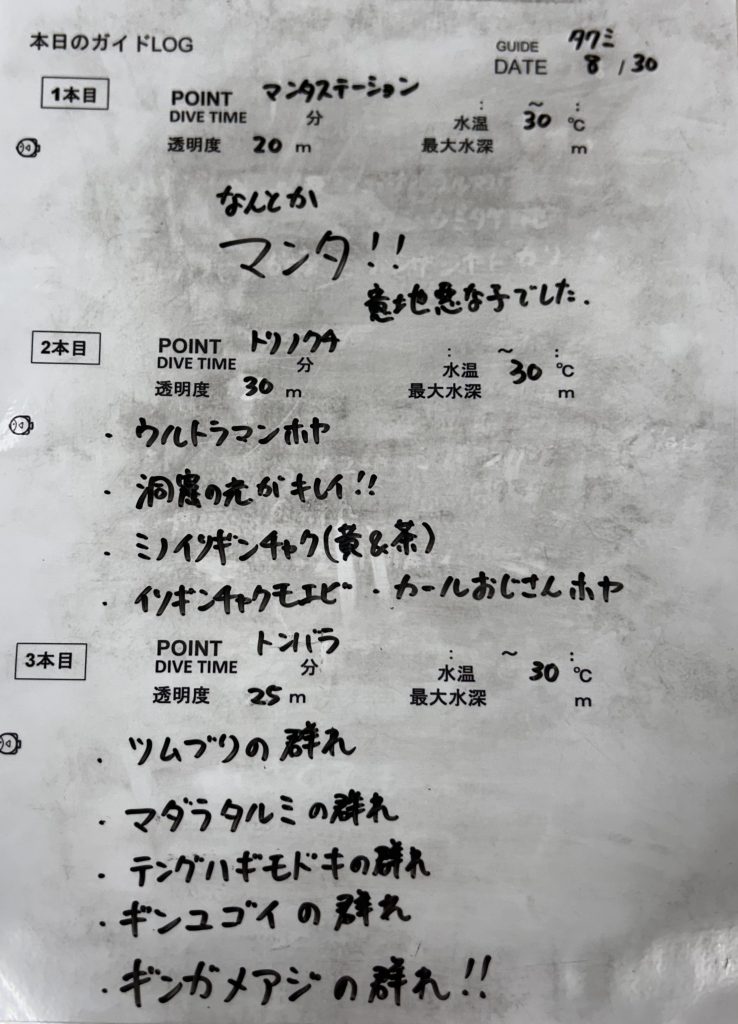 本日のガイドLOG
GUIDE タクミ
DATE 8 / 30
1本目 POINT マンタステーション
DIVE TIME 分 : ～ :
水温 30 ℃
透明度 20 m 最大水深 m
なんとか
マンタ!!
意地悪な子でした.
2本目 POINT トリノクチ
DIVE TIME 分 : ～ :
水温 30 ℃
透明度 30 m 最大水深 m
・ウルトラマンホヤ
・洞窟の光がキレイ!!
・ミノイソギンチャク(黄&茶)
・イソギンチャクモエビ ・カールおじさんホヤ
3本目 POINT トンバラ
DIVE TIME 分 : ～ :
水温 30 ℃
透明度 25 m 最大水深 m
・ツムブリの群れ
・マダラタルミの群れ
・テングハギモドキの群れ
・ギンユゴイの群れ
・ギンガメアジの群れ!!